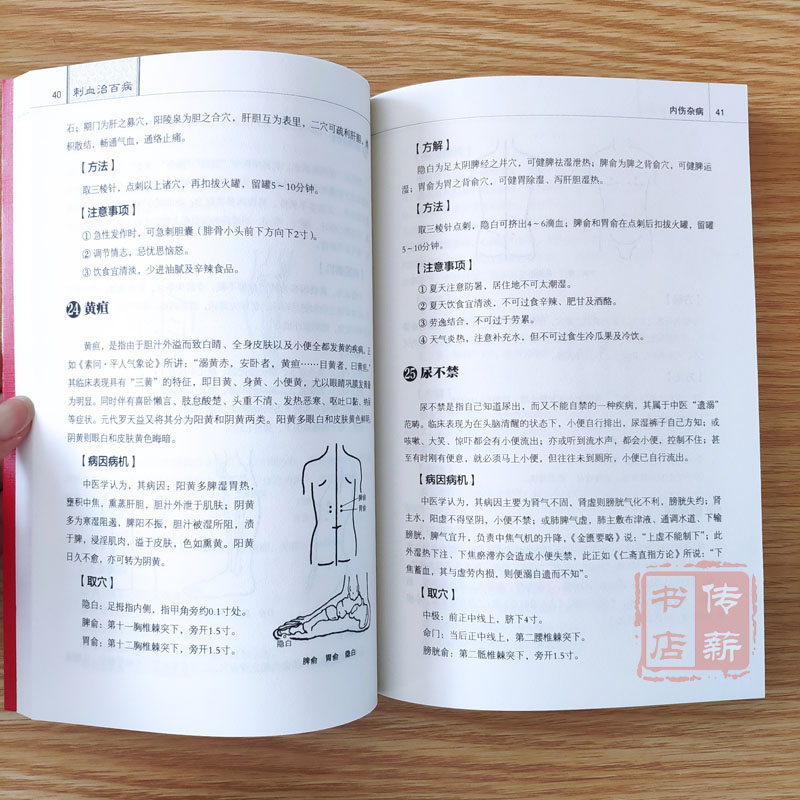 40 刺血治百病
石；期门为肝之募穴，阳陵泉为胆之合穴，肝胆互为表里，二穴可疏利肝胆，
积散结，畅通气血，通络止痛。
【方法】
取三棱针，点刺以上诸穴，再扣拔火罐，留罐5～10分钟。
【注意事项】
①急性发作时，可急刺胆囊（腓骨小头前下方向下2寸）。
②调节情志，忌忧思恼怒。
③饮食宜清淡，少进油腻及辛辣食品。
24 黄疸
黄疸，是指由于胆汁外溢而致白睛、全身皮肤以及小便全都发黄的疾病，正
如《素问·平人气象论》所讲：“溺黄赤，安卧者，黄疸……目黄者，曰黄疸。”
其临床表现具有“三黄”的特征，即目黄、身黄、小便黄，尤以眼睛巩膜发黄最
为明显。同时伴有喜卧懒言、肢怠酸楚、头重不清、发热恶寒、呕吐口黏、纳呆
等症状。元代罗天益又将其分为阳黄和阴黄两类。阳黄多眼白和皮肤黄色鲜明，
阴黄则眼白和皮肤黄色晦暗。
【病因病机】
中医学认为，其病因：阳黄多脾湿胃热，
壅积中焦，熏蒸肝胆，胆汁外泄于肌肤；阴黄
多为寒湿阻遏，脾阳不振，胆汁被湿所阻，渍
于脾，浸淫肌肉，溢于皮肤，色如熏黄。阳黄
日久不愈，亦可转为阴黄。
【取穴】
隐白：足拇指内侧，指甲角旁约0.1寸处。
脾俞：第十一胸椎棘突下，旁开1.5寸。
胃俞：第十二胸椎棘突下，旁开1.5寸。
脾俞
胃俞
隐白
脾俞 胃俞 隐白
内伤杂病 41
【方解】
隐白为足太阴脾经之井穴，可健脾祛湿泄热；脾俞为脾之背俞穴，可健脾运
湿；胃俞为胃之背俞穴，可健胃除湿、泻肝胆湿热。
【方法】
取三棱针点刺，隐白可挤出4～6滴血；脾俞和胃俞在点刺后扣拔火罐，留罐
5～10分钟。
【注意事项】
①夏天注意防暑，居住地不可太潮湿。
②夏天饮食宜清淡，不可过食辛辣、肥甘及酒酪。
③劳逸结合，不可过于劳累。
④天气炎热，注意补充水分，但不可过食生冷瓜果及冷饮。
25 尿不禁
尿不禁是指自己知道尿出，而又不能自禁的一种疾病，其属于中医“遗溺”
范畴。临床表现为在头脑清醒的状态下，小便自行排出，尿湿裤子自己方知；或
咳嗽、大笑、惊吓都会有小便流出；亦或听到流水声，都会小便，控制不住；甚
至有时刚有便意，就必须马上小便，但往往未到厕所，小便已自行流出。
【病因病机】
中医学认为，其病因主要为肾气不固，肾虚则膀胱气化不利，膀胱失约；肾
主水，阳虚不得坚阴，小便不禁；或肺脾气虚，肺主敷布津液、通调水道、下输
膀胱，脾气宜升，负责中焦气机的升降，《金匮要略》说：“上虚不能制下”；此
外湿热下注、下焦瘀滞亦会造成小便失禁，此正如《仁斋直指方论》所说：“下
焦蓄血，其与虚劳内损，则便溺自遗而不知”。
【取穴】
中极：前正中线上，脐下4寸。
命门：当后正中线上，第二腰椎棘突下。
膀胱俞：第二骶椎棘突下，旁开1.5寸。
传薪
书店